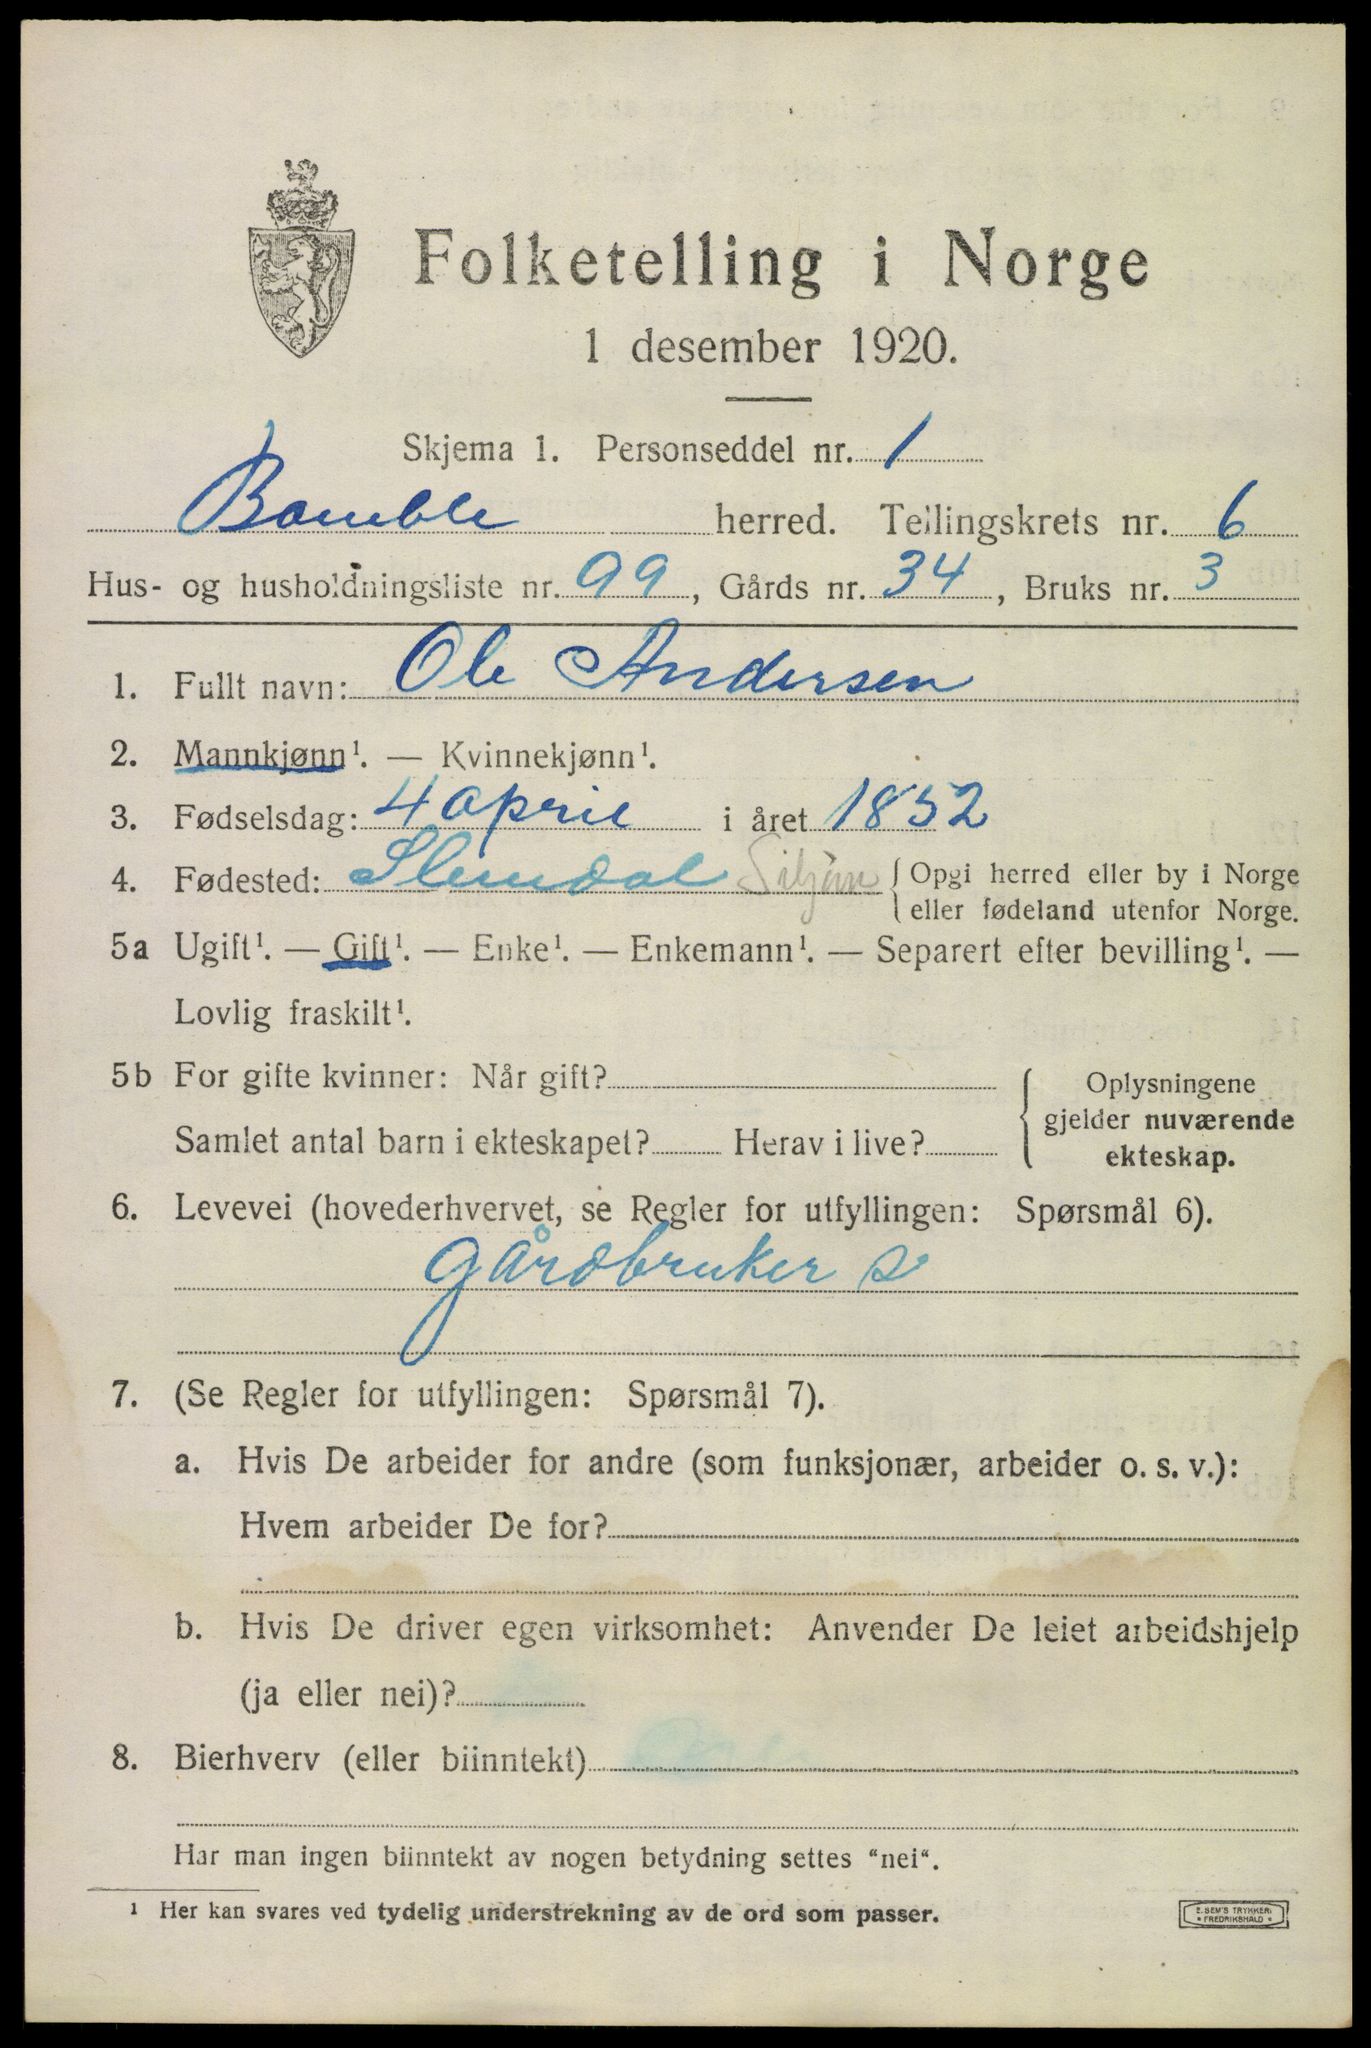 Folketelling i Norge
1 desember 1920.
Skjema 1. Personseddel nr. 1
Bamble herred. Tellingskrets nr. 6
Hus- og husholdningsliste nr. 99, Gårds nr. 34, Bruks nr. 3
1. Fullt navn: Ole Andersen
2. Mannkjønn¹. — Kvinnekjønn¹.
3. Fødselsdag: 4 april i året 1852
4. Fødested: Slemdal Siljan { Opgi herred eller by i Norge
eller fødeland utenfor Norge.
5a Ugift¹. — Gift¹. — Enke¹. — Enkemann¹. — Separert efter bevilling¹. —
Lovlig fraskilt¹.
5b For gifte kvinner: Når gift?
Samlet antal barn i ekteskapet? Herav i live?
{ Oplysningene
gjelder nuværende
ekteskap.
6. Levevei (hovederhvervet, se Regler for utfyllingen: Spørsmål 6).
gårdbruker s
7. (Se Regler for utfyllingen: Spørsmål 7).
a. Hvis De arbeider for andre (som funksjonær, arbeider o. s. v.):
Hvem arbeider De for?
b. Hvis De driver egen virksomhet: Anvender De leiet arbeidshjelp
(ja eller nei)?
8. Bierhverv (eller biinntekt)
Har man ingen biinntekt av nogen betydning settes "nei".
1 Her kan svares ved tydelig understrekning av de ord som passer.
E. SEM'S TRYKKERI
* FREDRIKSHALD *